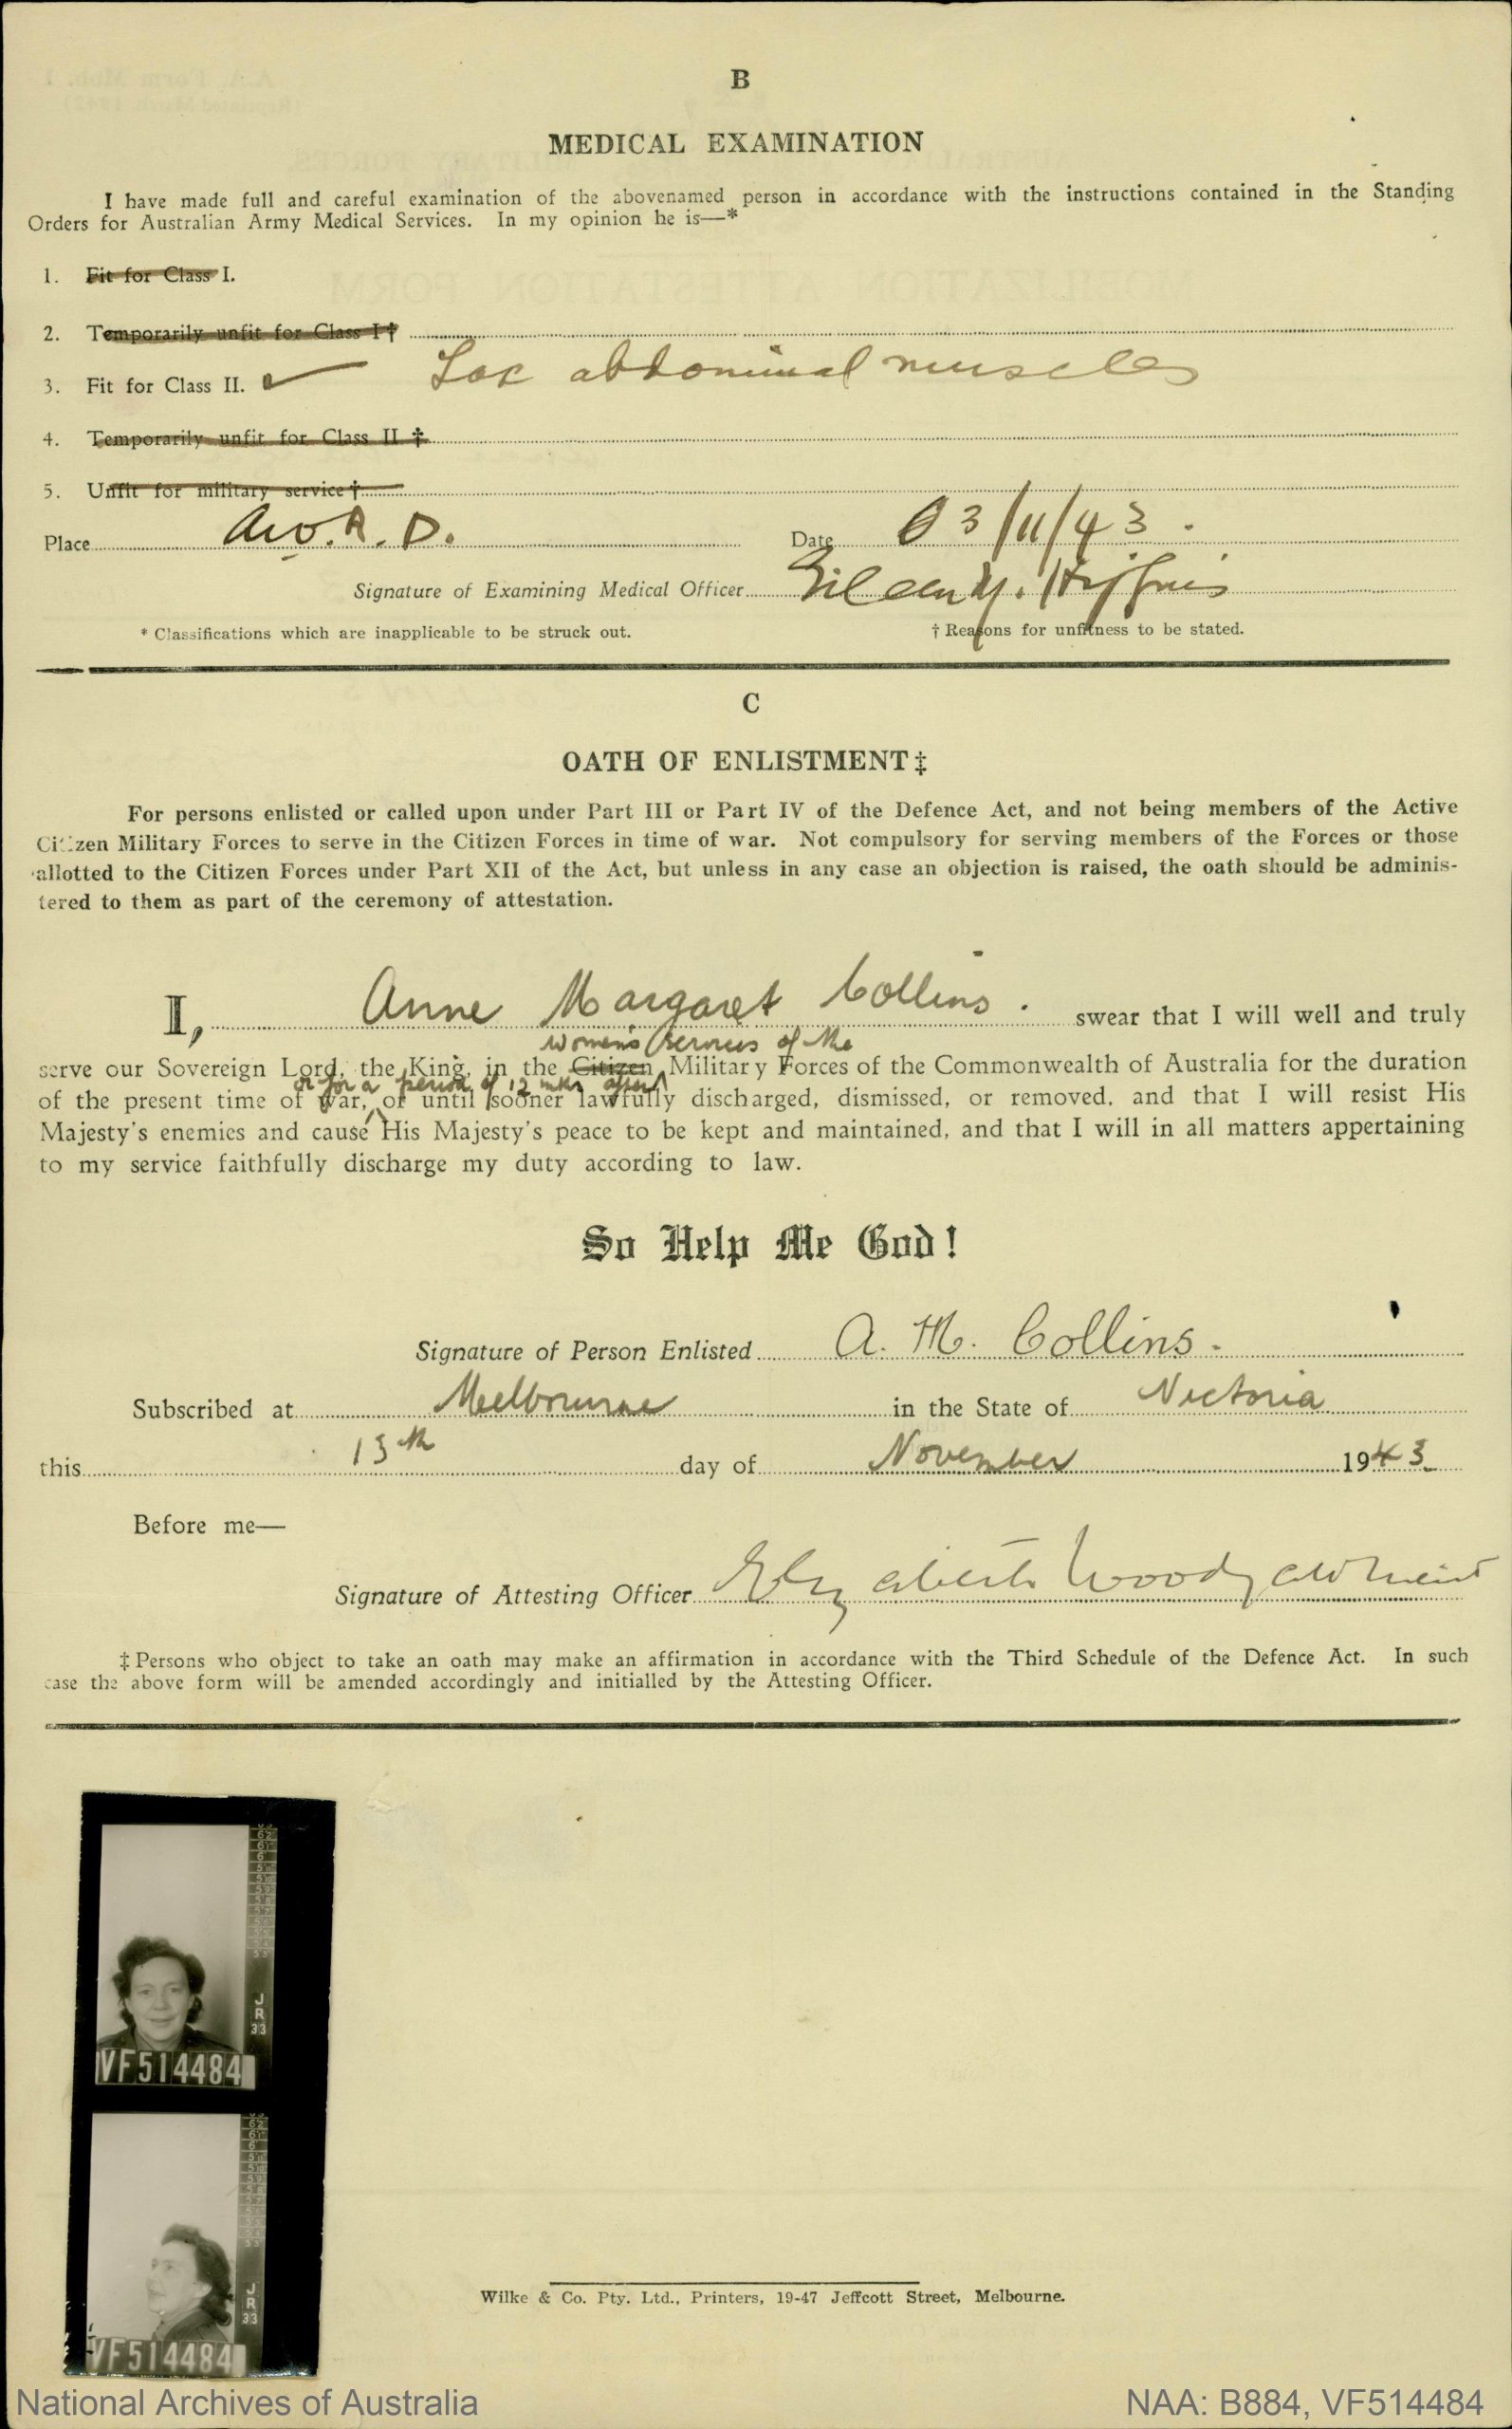 B
MEDICAL EXAMINATION
I have made full and careful examination of the abovenamed person in accordance with the instructions contained in the Standing
Orders for Australian Army Medical Services. In my opinion he is—*
1. Fit for Class I.
2. Temporarily unfit for Class I †
3. Fit for Class II. ✓ Lax abdominal muscles
4. Temporarily unfit for Class II ‡
5. Unfit for military service †
Place A.W.R.D. Date 03/11/43.
Signature of Examining Medical Officer Eileen
* Classifications which are inapplicable to be struck out. † Reasons for unfitness to be stated.
C
OATH OF ENLISTMENT ‡
For persons enlisted or called upon under Part III or Part IV of the Defence Act, and not being members of the Active
Citizen Military Forces to serve in the Citizen Forces in time of war. Not compulsory for serving members of the Forces or those
allotted to the Citizen Forces under Part XII of the Act, but unless in any case an objection is raised, the oath should be adminis-
tered to them as part of the ceremony of attestation.
I, Anne Margaret Collins. swear that I will well and truly
Women's Services of the
serve our Sovereign Lord, the King, in the Citizen Military Forces of the Commonwealth of Australia for the duration
or for a period of 12 mths after
of the present time of war, or until sooner lawfully discharged, dismissed, or removed, and that I will resist His
Majesty's enemies and cause His Majesty's peace to be kept and maintained, and that I will in all matters appertaining
to my service faithfully discharge my duty according to law.
So Help Me God!
Signature of Person Enlisted A. M. Collins.
Subscribed at Melbourne in the State of Victoria
this 13th day of November 1943
Before me—
Signature of Attesting Officer Elizabeth
‡ Persons who object to take an oath may make an affirmation in accordance with the Third Schedule of the Defence Act. In such
case the above form will be amended accordingly and initialled by the Attesting Officer.
JR
33
VF514484
JR
33
VF514484
Wilke & Co. Pty. Ltd., Printers, 19-47 Jeffcott Street, Melbourne.
National Archives of Australia NAA: B884, VF514484